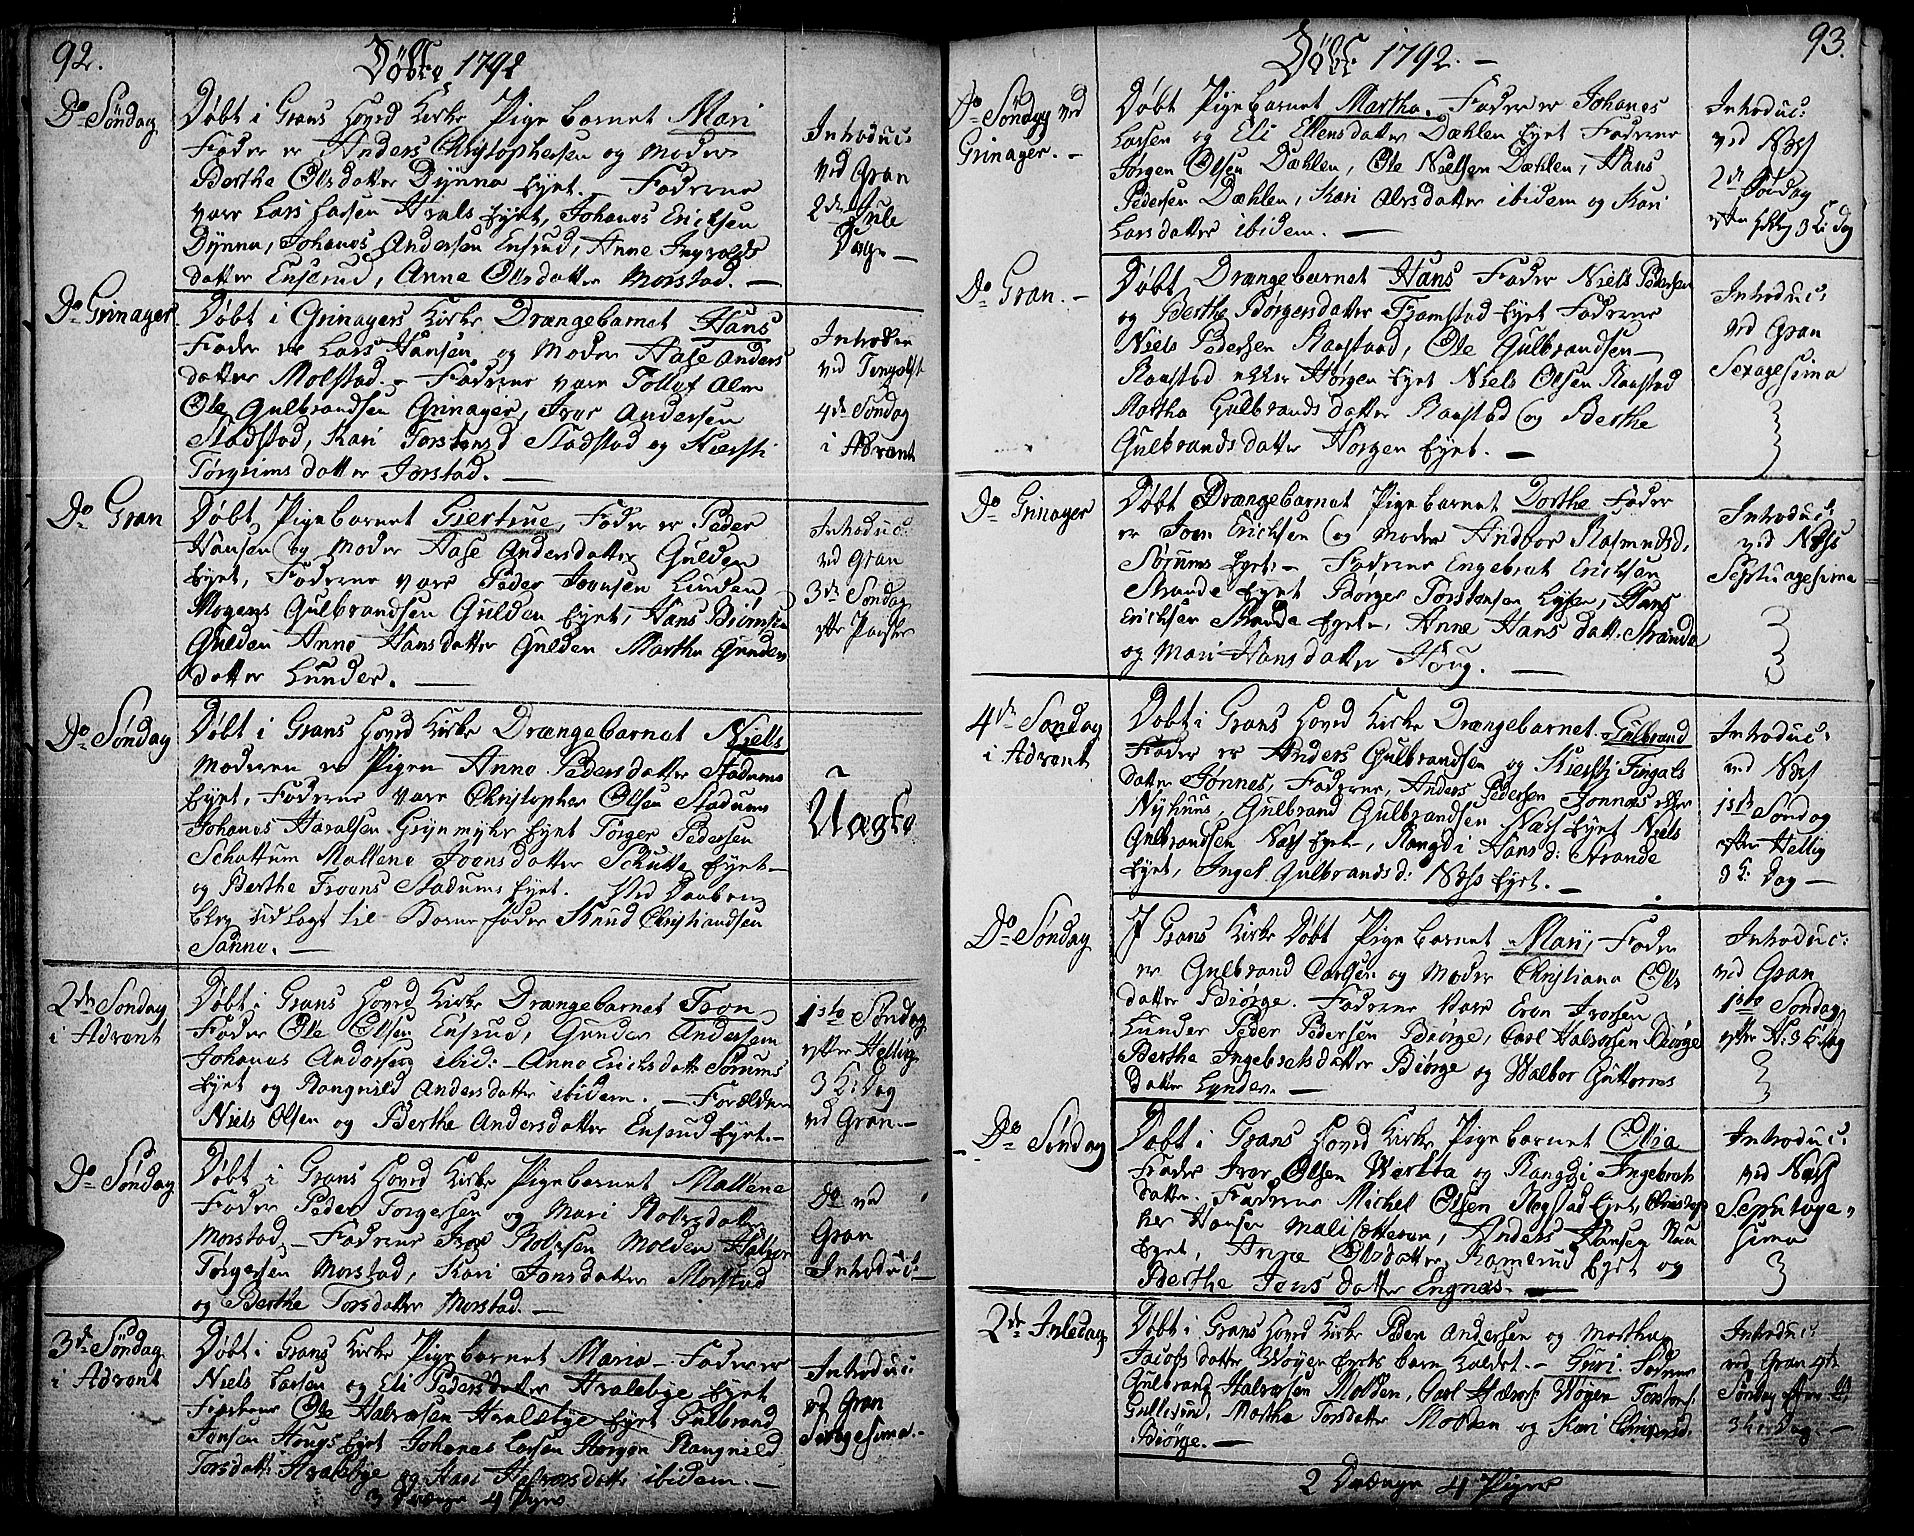 92.
Döbte 1792
Do Söndag
Döbt i Grans Hoved Kirke Pige barnet Mari
Fader er Anders Christophersen og Moder
Berthe Olsdatter Dynna Eyet. Fadderne
vare Lars Larsen Hvals Eyet, Johanes Ericksen
Dynna, Johanes Andersen Ensrud, Anne Ingvolds
datter Ensrud, Anne Olsdatter Morstad. —
Introduc:
ved Gran
2den Jule
Dag —
Do Grinager
Döbt i Grinagers Kirke Drængebarnet Hans
Fader er Lars Hansen og Moder Aase Anders
datter Molstad. — Fadderne vare Tollef Alm
Ole Gulbrandsen Grinager, Iver Andersen
Stadstad, Kari Torstensd Stadstad og Kiersti
Törgrims datter Jorstad. —
ved
4de Söndag
i Advent
Do Gran
Döbt Pigebarnet Giertrue, Fader er Peder
Hansen og Moder Aase Andersdatter Gulden
Eyet, Fadderne vare Peder Iversen Lunden
Mogens Gulbrandsen Gulden Eyet, Hans Biörnsen
Gulden Anne Hansdatter Gulden Martha Gunders
datter Lunder. —
Introduc:
ved Gran
3de Söndag
efter Paaske
Do Söndag
Döbt i Grans Hoved Kirke Drængebarnet Niels
Moderen er Pigen Anne Pedersdatter Stadums
Eyet, Fadderne vare Christopher Olsen Stadum
Johanes Haralsen Grynmyhr Eyet Törger Pedersen
Schattum Mallene Joonsdatter Schutte Eyet —
og Berthe Troons Stadums Eyet. Ved Daaben
blev udlagt til Barnefader Knud Christiandsen
Sanne. —
Uægte
2den Söndag
i Advent
Döbt i Grans Hoved Kirke Drængebarnet Tron
Fader Ole Olsen Ensrud, Gunder Andersen
Johanes Andersen ibid: — Anne Ericksdatt: Sörums
Eyet og Rangnild Andersdatter ibidem. — Forældre
Niels Olsen og Berthe Andersdatter Ensrud Eyet. —
1ste Söndag
efter Hellig
3 K: Dag
ved Gran. —
Do Söndag
Döbt i Grans Hoved Kirke Pigebarnet Mallene
Fader Peder Torgersen og Mari
Morstad — Fadderne Iver Robersen Molden Halvor
Törgersen Morstad, Kari Jonsdatter Morstad
og Berthe Torsdatter Morstad. —
Do ved
Gran
Introduc: —
3de Söndag
i Advent
Döbt i Grans Kirke Pigebarnet Maria — Fader er
Niels Larsen og Eli Pedersdatter Hvalebye Eyet
Ole Halvorsen Hvalebye Eyet Gulbrand
Jensen Hougs Eyet Johanes Larsen Horgen Rangnild
Torsdatt: Hvalebye og Kari Halvorsdatter ibidem. —
Introduc:
ved Gran
Sexagesima. —
3 Drænge 4 Piger
93.
Döbte 1792. —
Do Söndag ved
Grinager. —
Döbt Pigebarnet Martha. Fader er Johanes
Larsen og Eli Ellensdatter Dæhlen Eyet Fadderne
Jörgen Olsen Dæhlen, Ole Nielsen Dæhlen, Hans
Pedersen Dæhlen, Kari Alvsdatter ibidem og Kari
Larsdatter ibidem. —
Introduc:
ved Næss
2den Söndag
efter Hellig 3 K: dag
Do Gran. —
Döbt Drængebarnet Hans Fader Niels Pedersen
og Berthe Börgersdatter Framstad Eyet Fadderne
Niels Pedersen Raastad, Ole Gulbrandsen —
Raastad eller Horgen Eyet Niels Olsen Raastad
Martha Gulbrands datter Raastad og Berthe
Gulbrands datter Horgen Eyet. —
Introduc:
ved Gran
Sexagesima
Do Grinager
Döbt Drængebarnet Pigebarnet Dorthe Fader
er Joen Ericksen og Moder Andbor Rasmusd,
Sörums Eyet. — Fadderne Engebret Ericksen
Strande Eyet Börger Torstensen Lysen, Hans
Ericksen Strande Eyet, Anne Hans datt: Strande
og Mari Hansdatter Houg. —
Introduc:
ved Næss
Septuagesima
4de Söndag
i Advent
Döbt i Grans Hoved Kirke Drængebarnet Gulbrand
Fader er Anders Gulbrandsen og Kiersti Fingals
datter Jönnes, Fadderne, Anders Pedersen Jonnes eller
Nyhuus, Gulbrand Gulbrandsen Næss Eyet Niels
Gulbrandsen Næss Eyet, Rangdi Hans d: Strande
Eyet, Ingel Gulbrandsd: Næss Eyet. —
Introduc:
ved Næss
1ste Söndag
efter Hellig
3 K: Dag —
Do Söndag
I Grans Kirke Döbt Pigebarnet Mari, Fader
er Gulbrand Carlsen og Moder Christiana Ols
datter Biörge. Fadderne Vare Even Iversen
Lunder Peder Pedersen Biörge, Carl Halvorsen Biörge
Berthe Ingebretsdatter Biörge og Walbor Guttorms
datter Lynder. —
Introduc:
ved Gran
1ste Söndag
efter H: 3 K: dag
Do Söndag
Döbt i Grans Hoved Kirke Pigebarnet Ollia
Fader Iver Olsen og Rangdi Ingebrets
datter. Fadderne Michel Olsen Rogstad Eyet, Christop
her Hansen Anders Hansen
Eyet, Anne Olsdatter Ramerud Eyet og
Berthe Jens datter Engnæs. —
Introduc:
ved Næss
Septuage =
sima
2den Juledag
Döbt i Grans Hoved Kirke Peder Andersen og Martha
Jacobs datter Woyen Eyets barn kaldet — Guri. Fadderne
Gulbrand Halvorsen Molden, Carl Halvors: Woyen Torstens:
Gullerud, Martha Torsdatter Molden og Kari
Biörge. —
Introduc:
ved Gran 4de
Söndag efter H:
3 K: Dag. —
2 Drænge 4 Piger